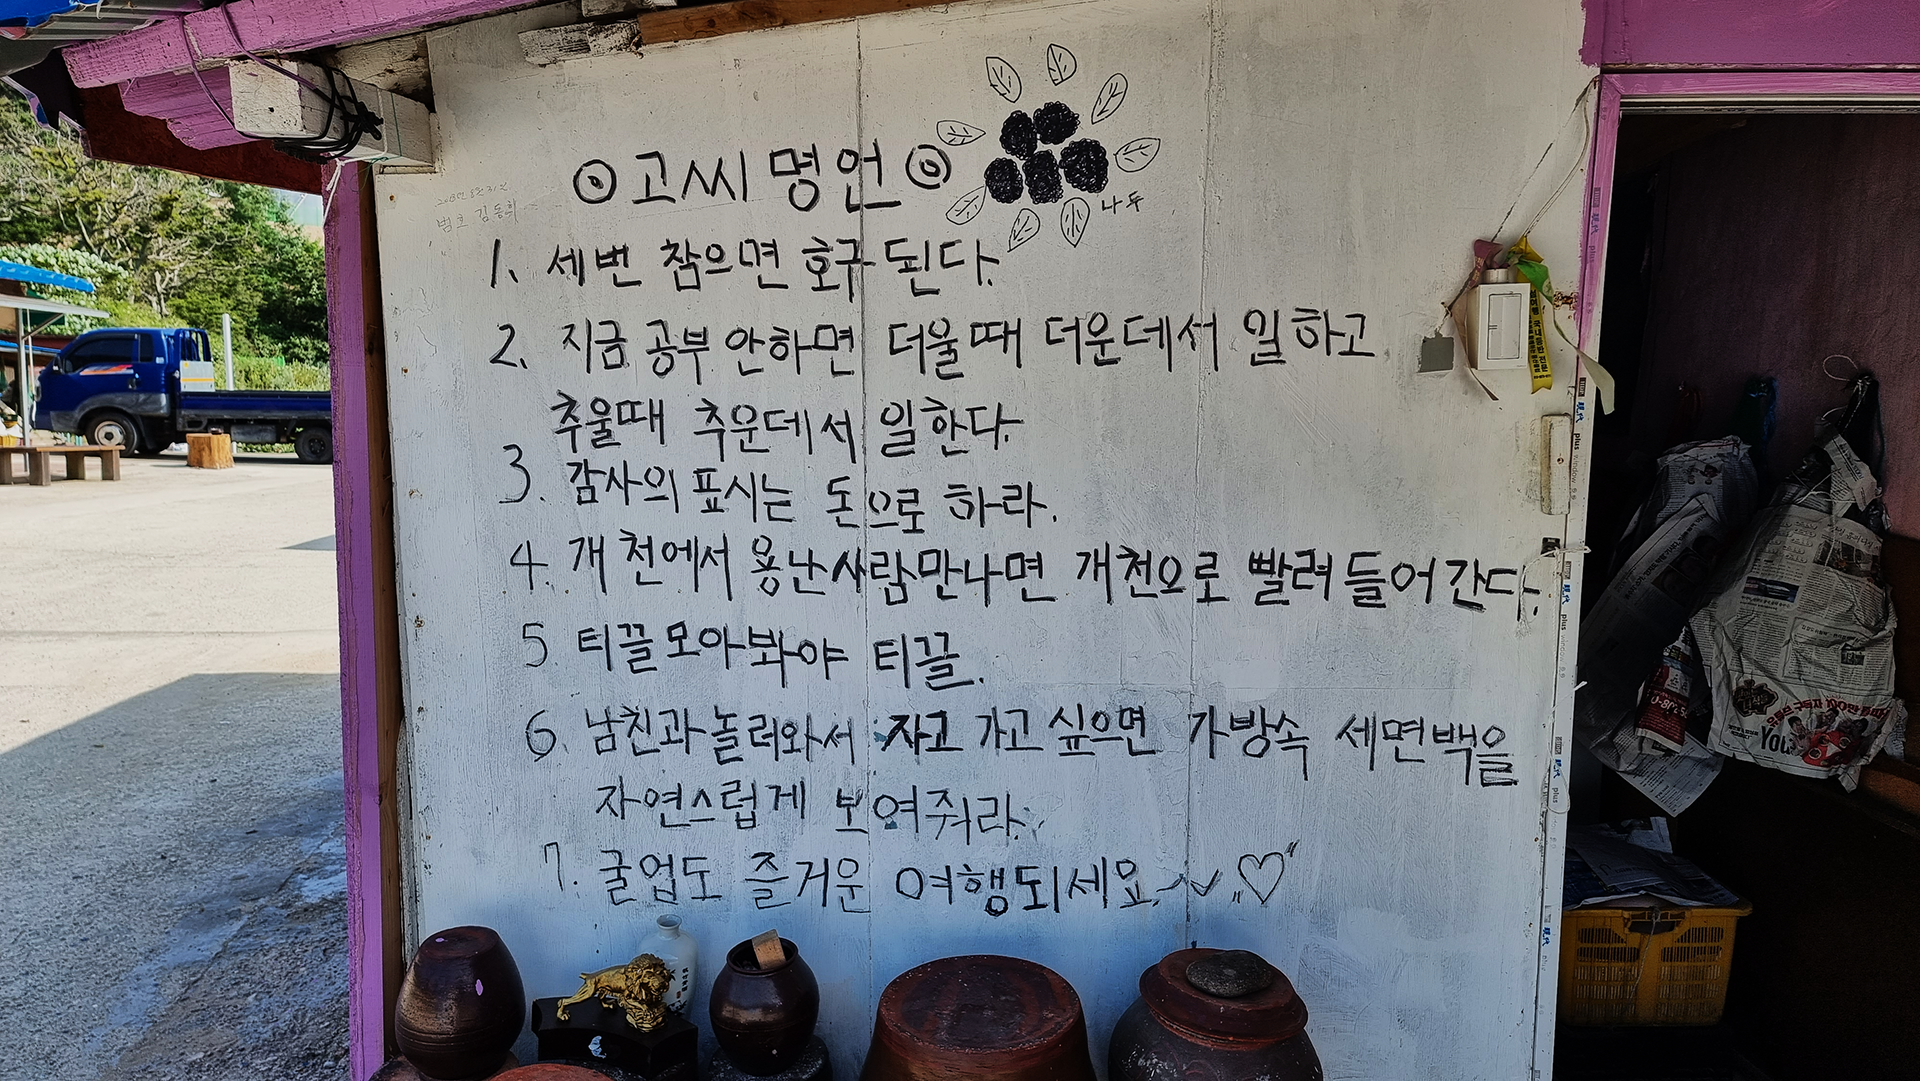 ⊙ 고씨 명언 ⊙
나두
김동희
1. 세번 참으면 호구 된다.
2. 지금 공부 안하면 더울때 더운데서 일하고
추울때 추운데서 일한다.
3. 감사의 표시는 돈으로 하라.
4. 개천에서 용난사람만나면 개천으로 빨려들어간다.
5 티끌모아봐야 티끌.
6. 남친과놀러와서 자고 가고 싶으면 가방속 세면백을
자연스럽게 보여줘라.
7. 굴업도 즐거운 여행되세요.~♡
plus window
You